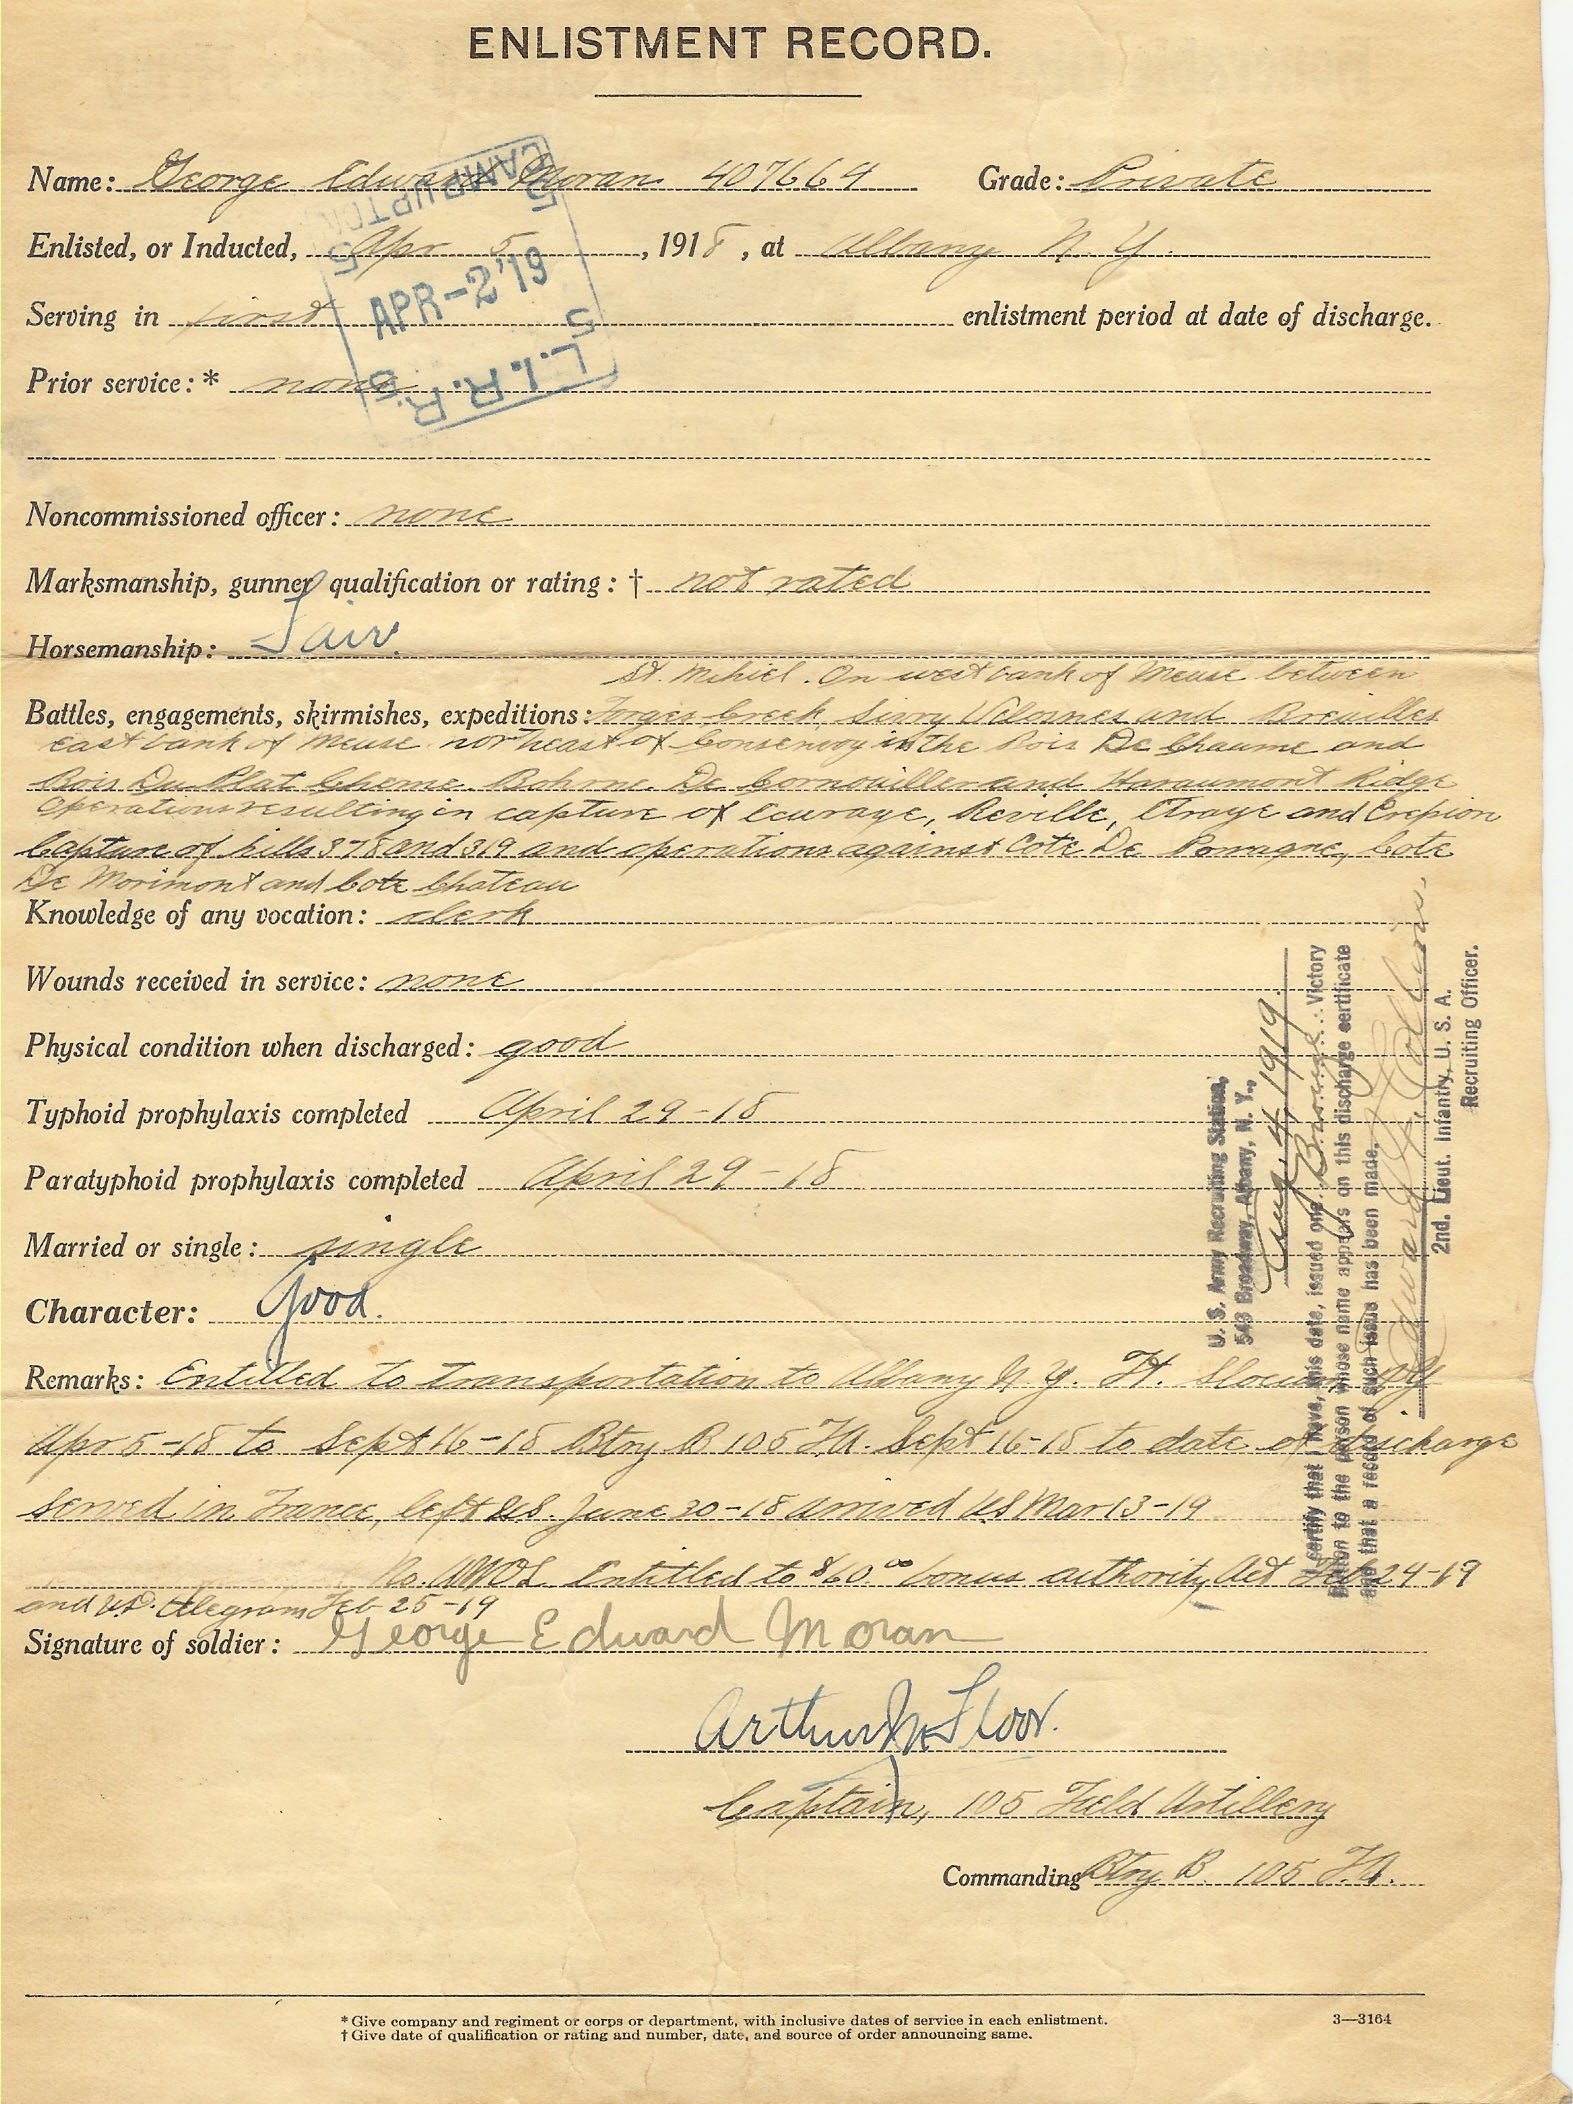 ENLISTMENT RECORD.
Name: George Edward Moran 407664 Grade: Private
Enlisted, or Inducted, Apr 5, 1918, at Albany N.Y.
Serving in first enlistment period at date of discharge.
Prior service:* none
CAMP UPTON
5 5
APR-2'19
5 5
L.I.R.R.
Noncommissioned officer: none
Marksmanship, gunner qualification or rating: † not rated
Horsemanship: Fair.
St. Mihiel. On west bank of Meuse between
Battles, engagements, skirmishes, expeditions: Forges Creek, and
east bank of Meuse northeast of in the Bois De Chaume and
Bois Du Plat Cheme. De Cornouiller and Haraumont Ridge
Operations resulting in capture of Ecuraye, Reville, Etraye and Crepion
Capture of hills 378 and 319 and operations against Cote De Romagne, Cote
De Morimont and Cote Chateau
Knowledge of any vocation: clerk
Wounds received in service: none
Physical condition when discharged: good
Typhoid prophylaxis completed April 29-18
Paratyphoid prophylaxis completed April 29-18
Married or single: single
Character: Good.
Remarks: Entitled to transportation to Albany N.Y. Ft. Slocum NY
Apr 5-18 to Sept 16-18 Btry B 105 F.A. Sept 16-18 to date of discharge
Served in France, left U.S. June 30-18 arrived US Mar 13-19
No. AWOL Entitled to $60.00 bonus authority Act Feb 24-19
and telegram Feb 25-19
Signature of soldier: George Edward Moran
Arthur Floor.
Captain, 105 Field Artillery
Commanding Btry B. 105 F.A.
U. S. Army Recruiting Station,
543 Broadway, Albany, N. Y.,
Aug. 4, 1919
I certify that I have, this date, issued one Bronze Victory
Button to the person whose name appears on this discharge certificate
and that a record of such issue has been made.
Edward H. Collins.
2nd. Lieut. Infantry, U. S. A.
Recruiting Officer.
* Give company and regiment or corps or department, with inclusive dates of service in each enlistment.
† Give date of qualification or rating and number, date, and source of order announcing same.
3—3164